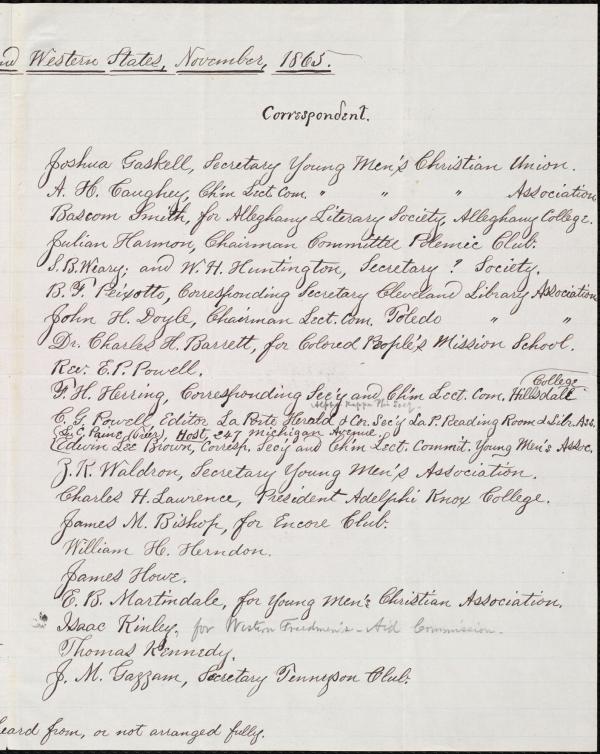 nd Western States, November, 1865.
Correspondent.
Joshua Gaskell, Secretary Young Men's Christian Union.
A. H. Caughey, Ch'm Lect Com. " " " Association
Bascom Smith, for Alleghany Literary Society, Alleghany College.
Julian Harmon, Chairman Committee Polemic Club.
S. B. Weary; and W. H. Huntington, Secretary ? Society.
B. F. Peixotto, Corresponding Secretary Cleveland Library Association
John H. Doyle, Chairman Lect. Com. Toledo " "
Dr. Charles H. Barrett, for Colored People's Mission School.
Rev. E. P. Powell.
College
F. H. Herring, Corresponding Sec'y and Ch'm Lect. Com. Hillsdale
Alpha Kappa Phi Socy
C. G. Powell, Editor La Porte Herald & Cor. Sec'y La P. Reading Room & Libr. Ass.
(L. C. Paine Freer), Host, 247 Michigan Avenue.
Edwin Lee Brown, Corresp. Sec'y and Ch'm Lect. Commit. Young Men's Assoc.
Z. K. Waldron, Secretary Young Men's Association.
Charles H. Lawrence, President Adelphi Knox College.
James M. Bishop, for Encore Club.
William H. Herndon.
James Howe.
E. B. Martindale, for Young Men's Christian Association.
Isaac Kinley, for Western Freedmen's-Aid Commission.
Thomas Kennedy.
J. M. Gazzam, Secretary Tennyson Club.
heard from, or not arranged fully.